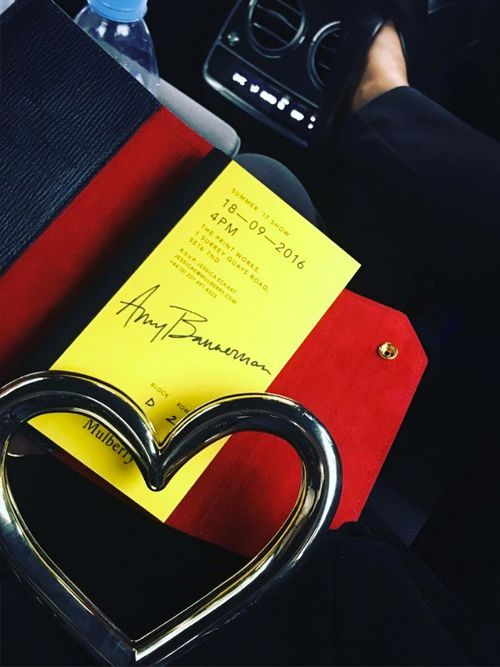 SUMMER '17 SHOW
18—09—2016
4PM
THE PRINT WORKS,
1 SURREY QUAYS ROAD,
SE16 7ND
R.S.V.P JESSICA ECKART
JESSICAE@MULBERRY.COM
Amy Bannerman
BLOCK ROW
D 2
Mulberry